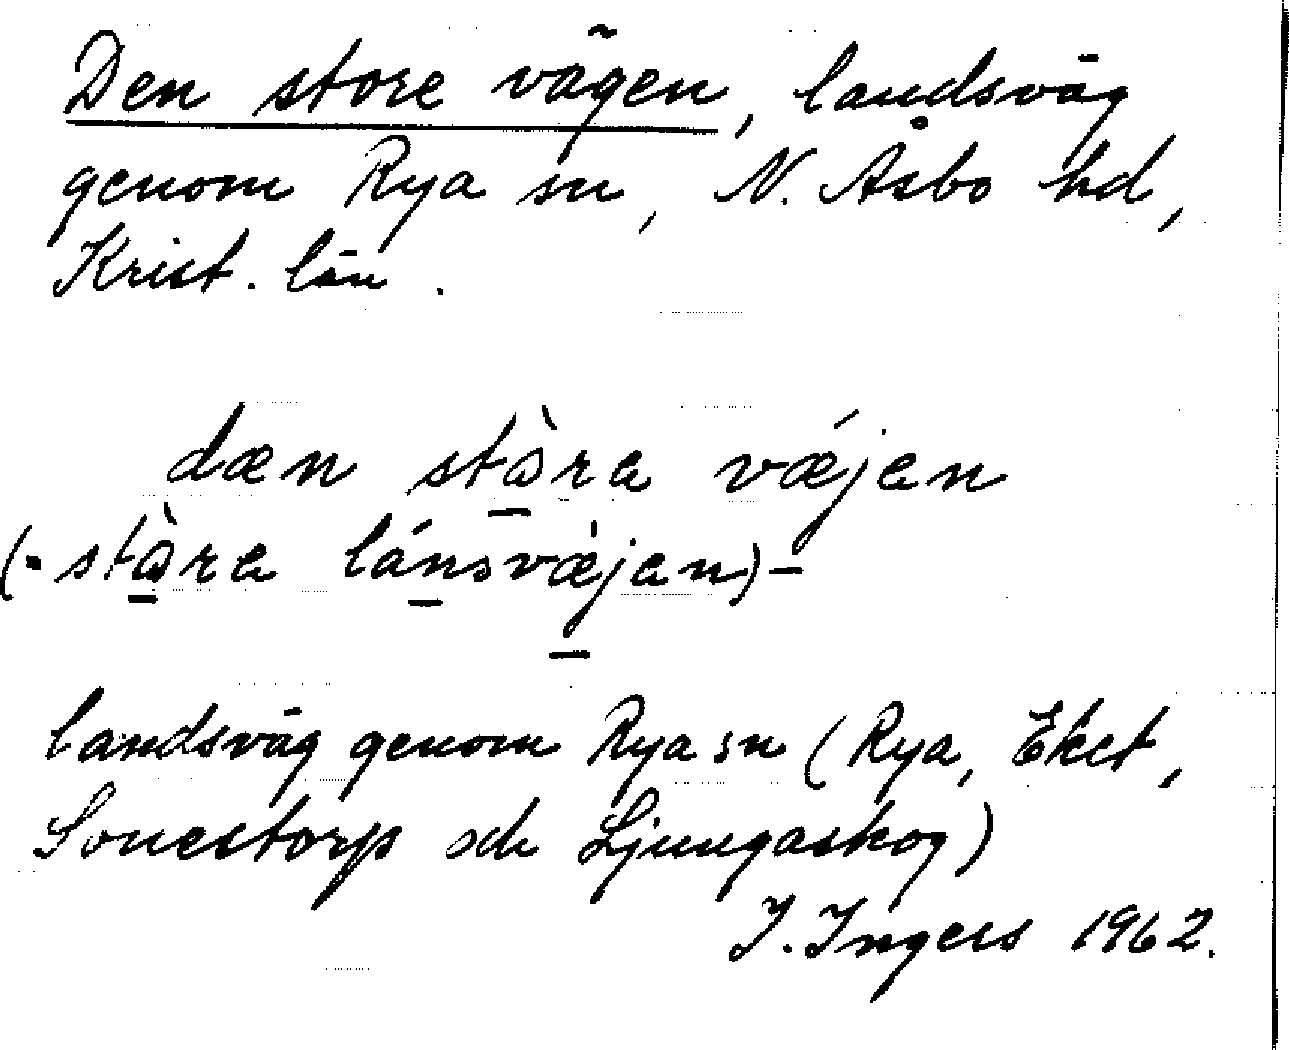 Den store vägen, landsväg
genom Rya sn, N. Åsbo hd,
Krist. län.
dæn stò̱ra vǽjen
(- stò̱ra láṉsvæ̀jen) -
landsväg genom Rya sn (Rya, Eket,
Sonestorp och Ljungaskog)
I. Ingers 1962.